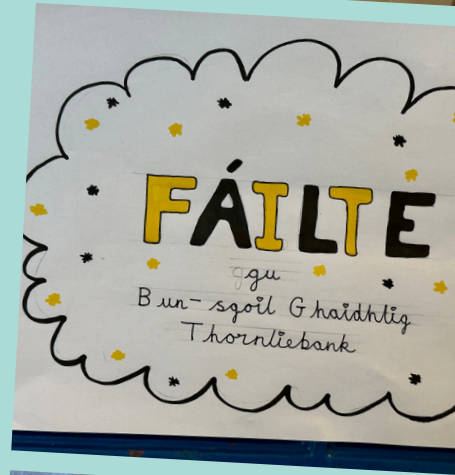 FÁILTE
gu
Bun-sgoil Ghaidhlig
Thornliebank